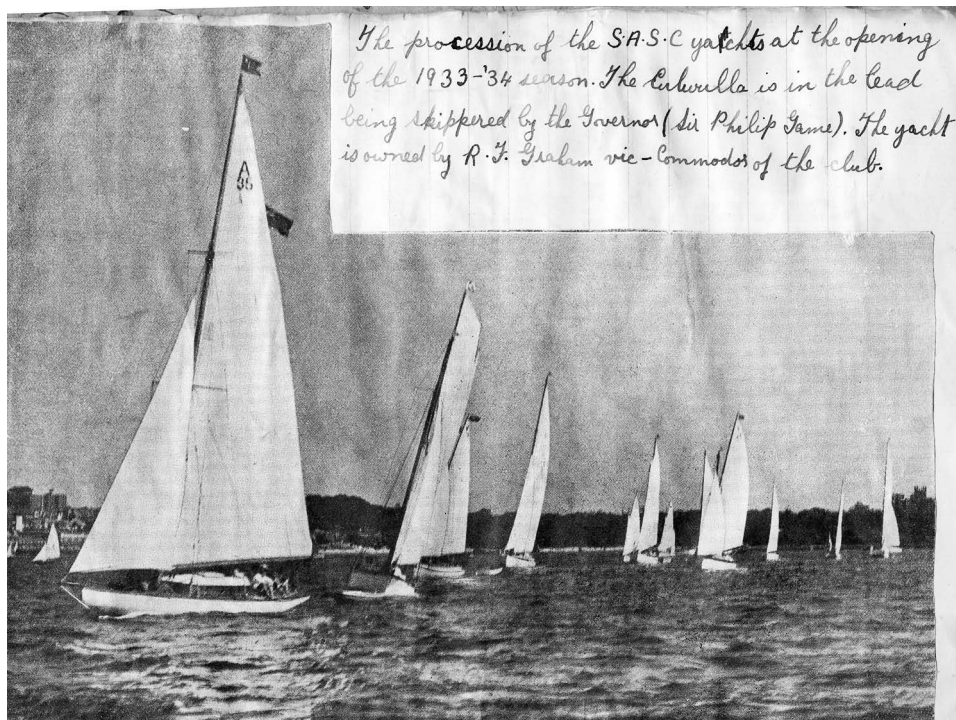 The procession of the S.A.S.C yachts at the opening
of the 1933-'34 season. The Culwulla is in the lead
being skippered by the Governor (Sir Philip Game). The yacht
is owned by R.F. Graham vic-Commodos of the club.
A